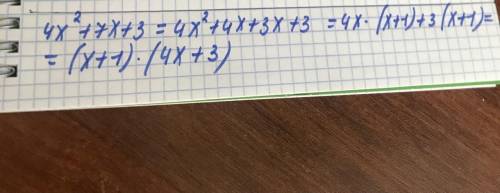 4x²+7x+3 = 4x²+4x+3x+3 = 4x·(x+1)+3(x+1)=
= (x+1)·(4x+3)